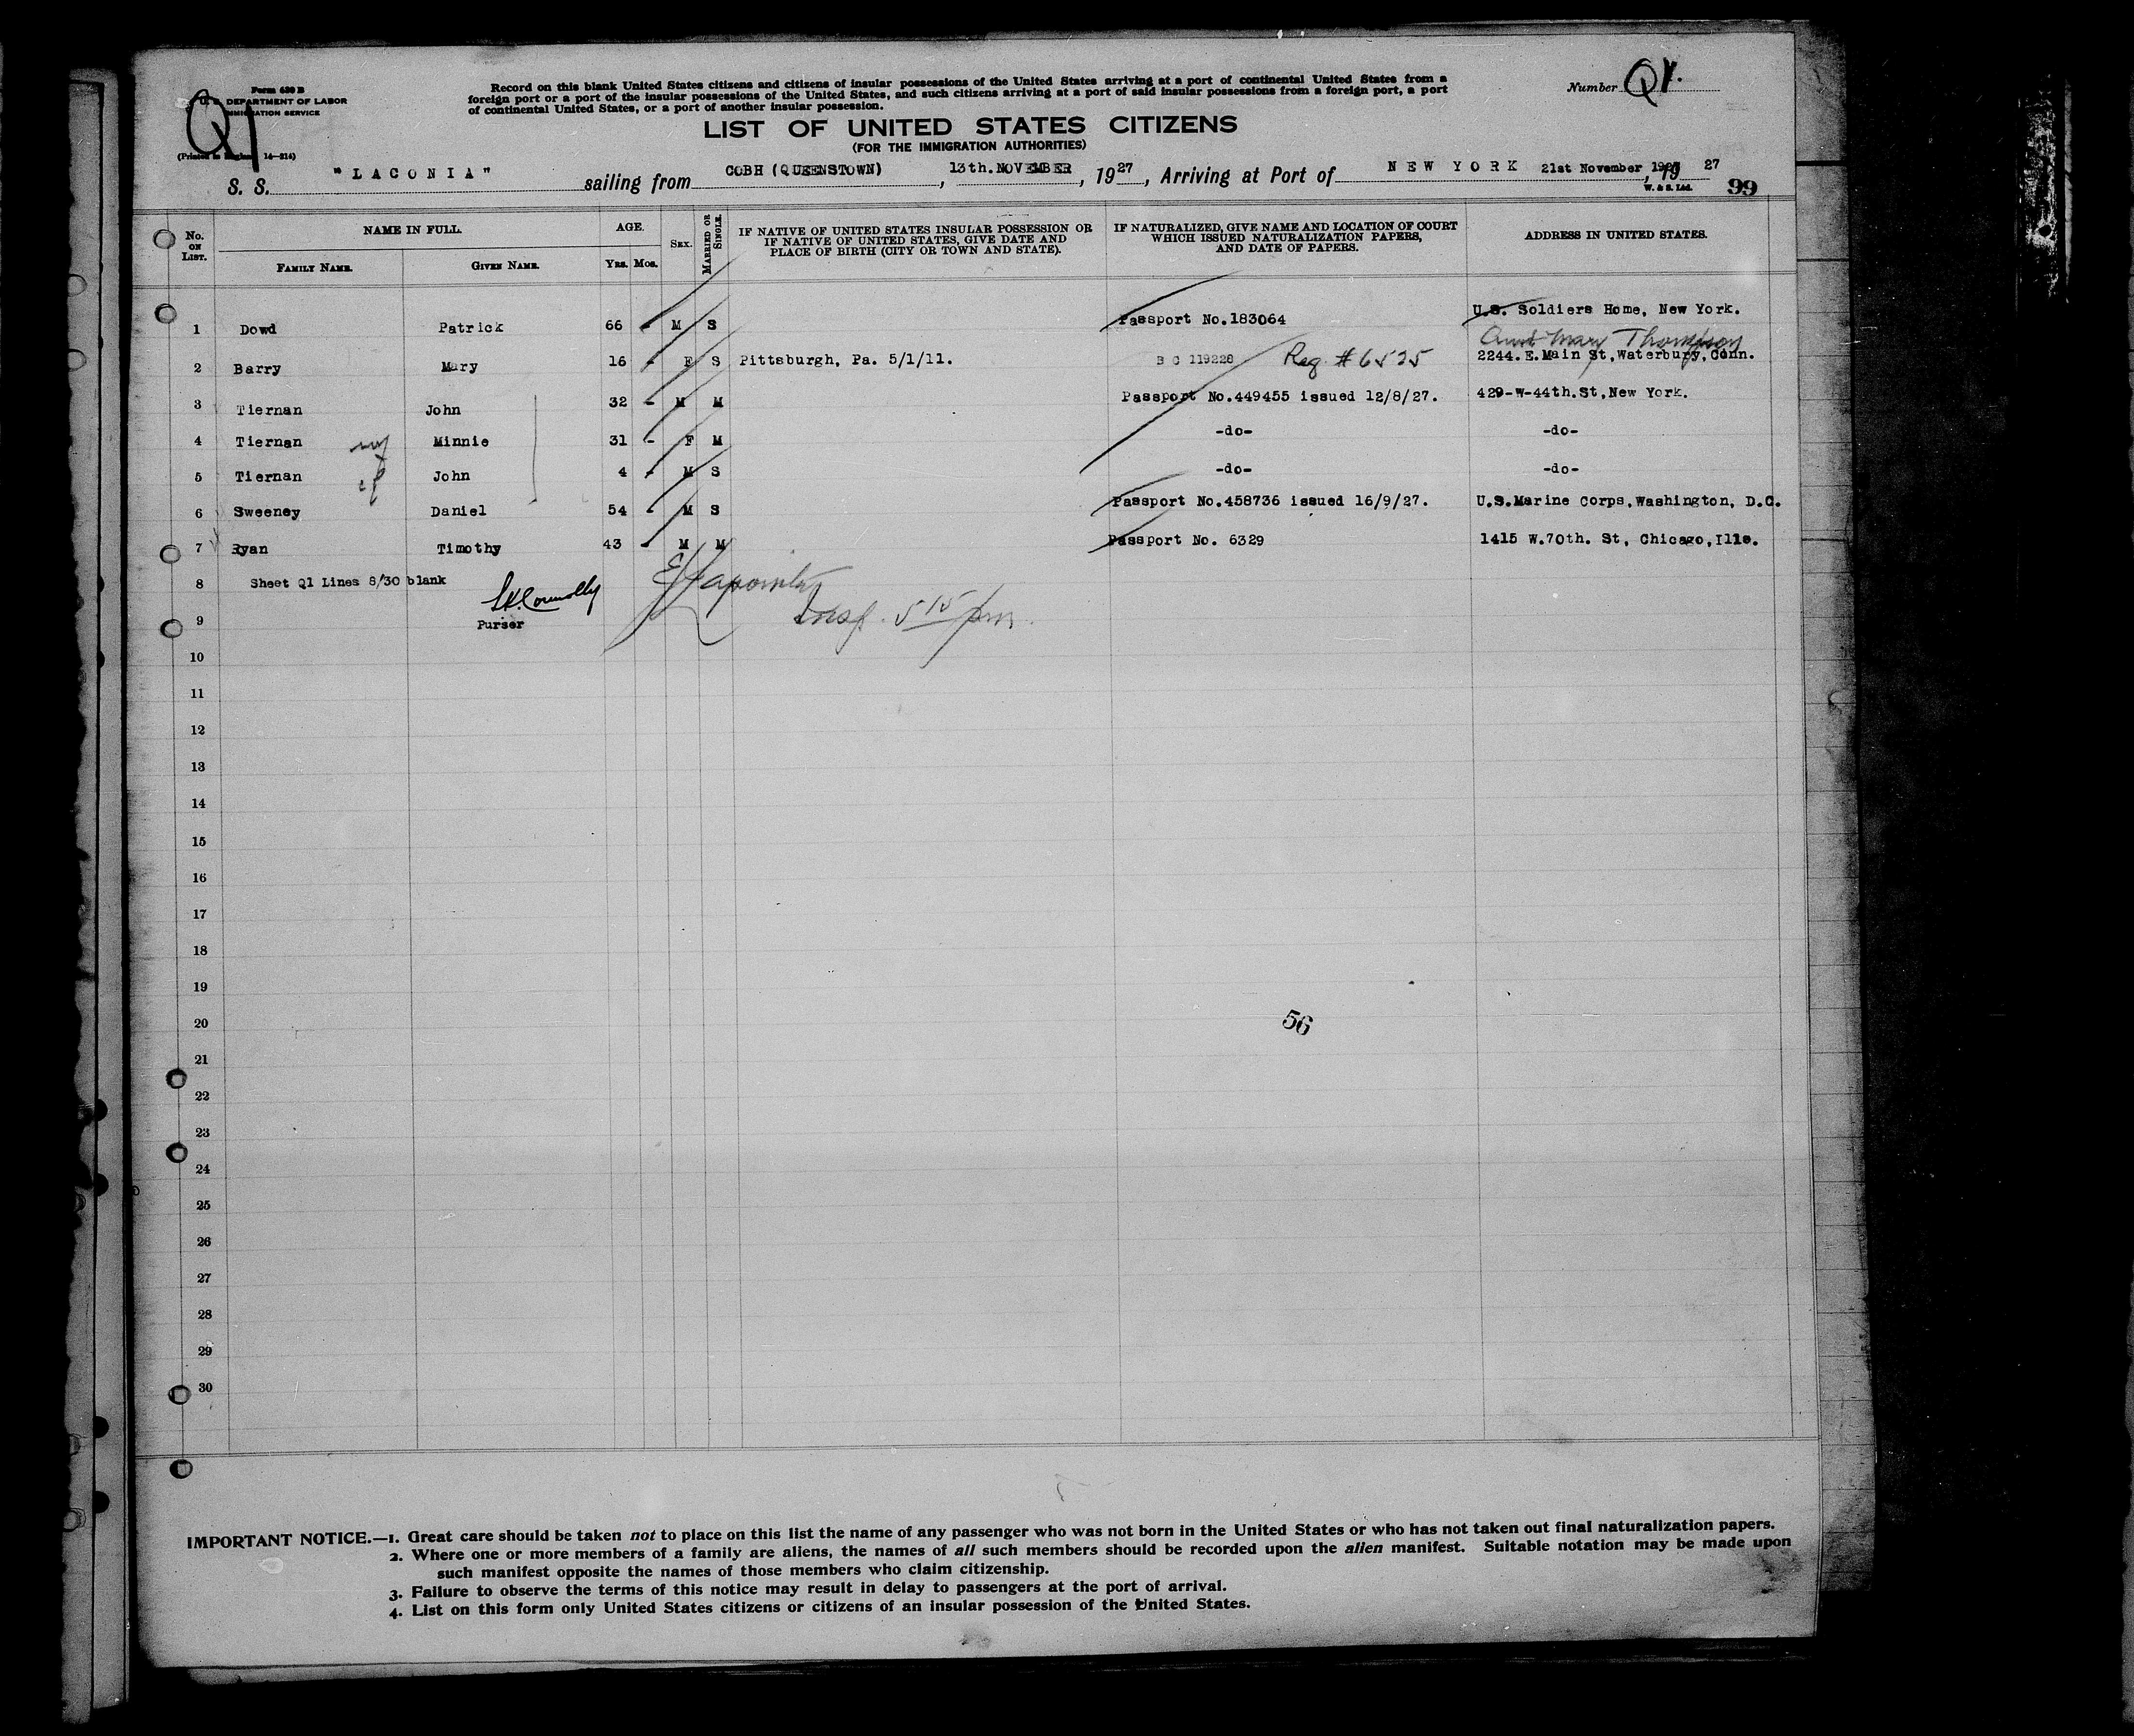 Form 630 B
U. S. DEPARTMENT OF LABOR
IMMIGRATION SERVICE
Q1
(Printed in England 14—214)
Record on this blank United States citizens and citizens of insular possessions of the United States arriving at a port of continental United States from a
foreign port or a port of the insular possessions of the United States, and such citizens arriving at a port of said insular possessions from a foreign port, a port
of continental United States, or a port of another insular possession.
Number Q1.
LIST OF UNITED STATES CITIZENS
(FOR THE IMMIGRATION AUTHORITIES)
S. S. "LACONIA" sailing from COBH (QUEENSTOWN), 13th. NOVEMBER, 1927, Arriving at Port of NEW YORK 21st November 1927, 19 27
W. & S. Ltd. 99
No. ON LIST. NAME IN FULL. AGE. SEX. MARRIED OR SINGLE. IF NATIVE OF UNITED STATES INSULAR POSSESSION OR IF NATIVE OF UNITED STATES, GIVE DATE AND PLACE OF BIRTH (CITY OR TOWN AND STATE). IF NATURALIZED, GIVE NAME AND LOCATION OF COURT WHICH ISSUED NATURALIZATION PAPERS, AND DATE OF PAPERS. ADDRESS IN UNITED STATES.
FAMILY NAME. GIVEN NAME. Yrs. Mos.
1 Dowd Patrick 66 - M S Passport No.183064 U.S. Soldiers Home, New York.
Aunt Mary Thompson
2 Barry Mary 16 - F S Pittsburgh, Pa. 5/1/11. B C 119228 Reg. #6525 2244. E. Main St, Waterbury, Conn.
3 Tiernan John 32 - M M Passport No.449455 issued 12/8/27. 429-W-44th.St, New York.
4 Tiernan Minnie 31 - F M -do- -do-
5 Tiernan John 4 - M S -do- -do-
6 Sweeney Daniel 54 - M S Passport No.458736 issued 16/9/27. U.S.Marine Corps, Washington, D.C.
7 Ryan Timothy 43 - M M Passport No. 6329 1415 W.70th. St, Chicago, Ills.
8 Sheet Q1 Lines 8/30 blank
Connolly
Insp. 5 15 pm.
9 Purser
10
11
12
13
14
15
16
17
18
19
20
56
21
22
23
24
25
26
27
28
29
30
IMPORTANT NOTICE.—1. Great care should be taken not to place on this list the name of any passenger who was not born in the United States or who has not taken out final naturalization papers.
2. Where one or more members of a family are aliens, the names of all such members should be recorded upon the alien manifest. Suitable notation may be made upon
such manifest opposite the names of those members who claim citizenship.
3. Failure to observe the terms of this notice may result in delay to passengers at the port of arrival.
4. List on this form only United States citizens or citizens of an insular possession of the United States.